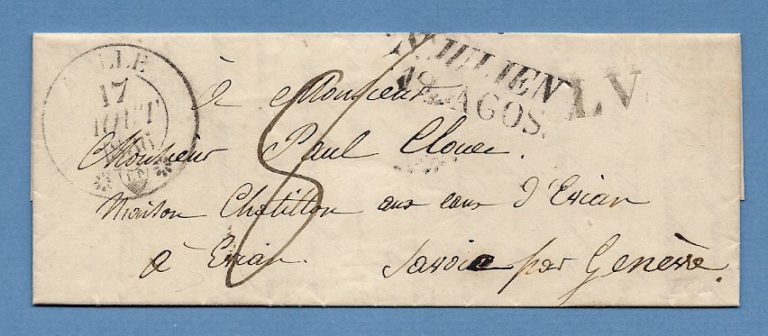 17
AOUT
JULIEN
19 AGOS.
L.V
8
à Monsieur
Monsieur Paul Clouec.
Maison Chatillon aux eaux d'Evian
à Evian. Savoie par Genève.